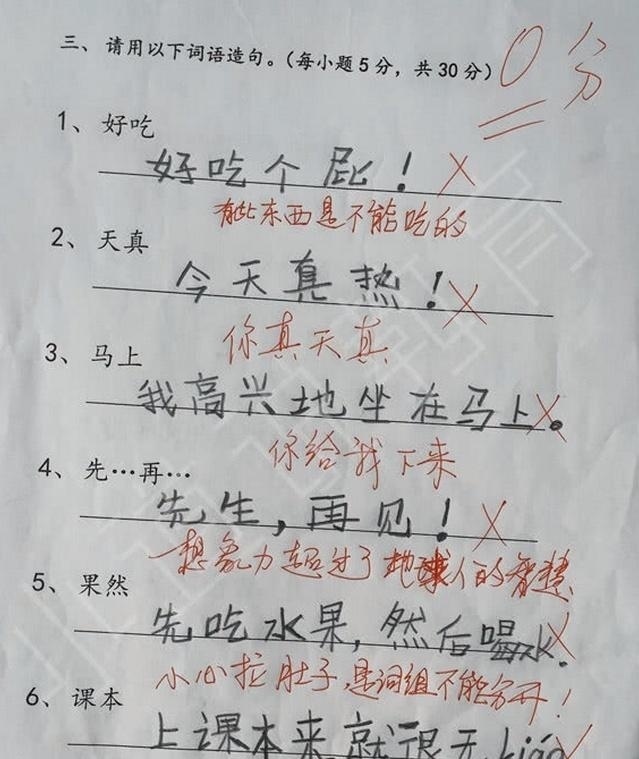 三、请用以下词语造句。（每小题5分，共30分）
0分
1、好吃
好吃个屁！
有些东西是不能吃的
2、天真
今天真热！
你真天真
3、马上
我高兴地坐在马上。
你给我下来
4、先…再…
先生，再见！
想象力超过了地球人的智慧
5、果然
先吃水果，然后喝水。
小心拉肚子，是词组不能分开！
6、课本
上课本来就很无liáo